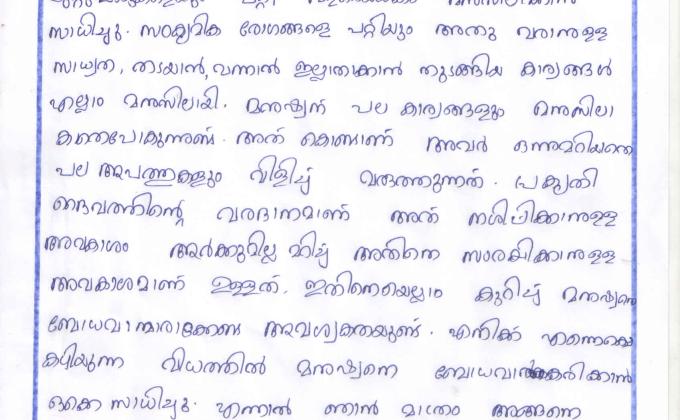 സാധിച്ചു. സാംക്രമിക രോഗങ്ങളെ പറ്റിയും അതു വരാനുള്ള
സാധ്യത, തടയാൻ, വന്നാൽ ഇല്ലാതാക്കാൻ തുടങ്ങിയ കാര്യങ്ങൾ
എല്ലാം മനസിലായി. മനുഷ്യന് പല കാര്യങ്ങളും മനസിലാ
കാതെപോകുന്നുണ്ട്. അത് കൊണ്ടാണ് അവർ ഒന്നുമറിയാതെ
പല ആപത്തുകളും വിളിച്ച് വരുത്തുന്നത്. പ്രകൃതി
ദൈവത്തിന്റെ വരദാനമാണ് അത് നശിപ്പിക്കാനുള്ള
അവകാശം ആർക്കുമില്ല മറിച്ച് അതിനെ സംരക്ഷിക്കാനുള്ള
അവകാശമാണ് ഉള്ളത്. ഇതിനെയെല്ലാം കുറിച്ച് മനുഷ്യനെ
ബോധവാന്മാരാക്കേണ്ട ആവശ്യകതയുണ്ട്. എനിക്ക് എന്നെകൊ
കഴിയുന്ന വിധത്തിൽ മനുഷ്യനെ ബോധവാൽക്കരിക്കാൻ
ഒക്കെ സാധിച്ചു. എന്നാൽ ഞാൻ മാത്രം അങ്ങനെ